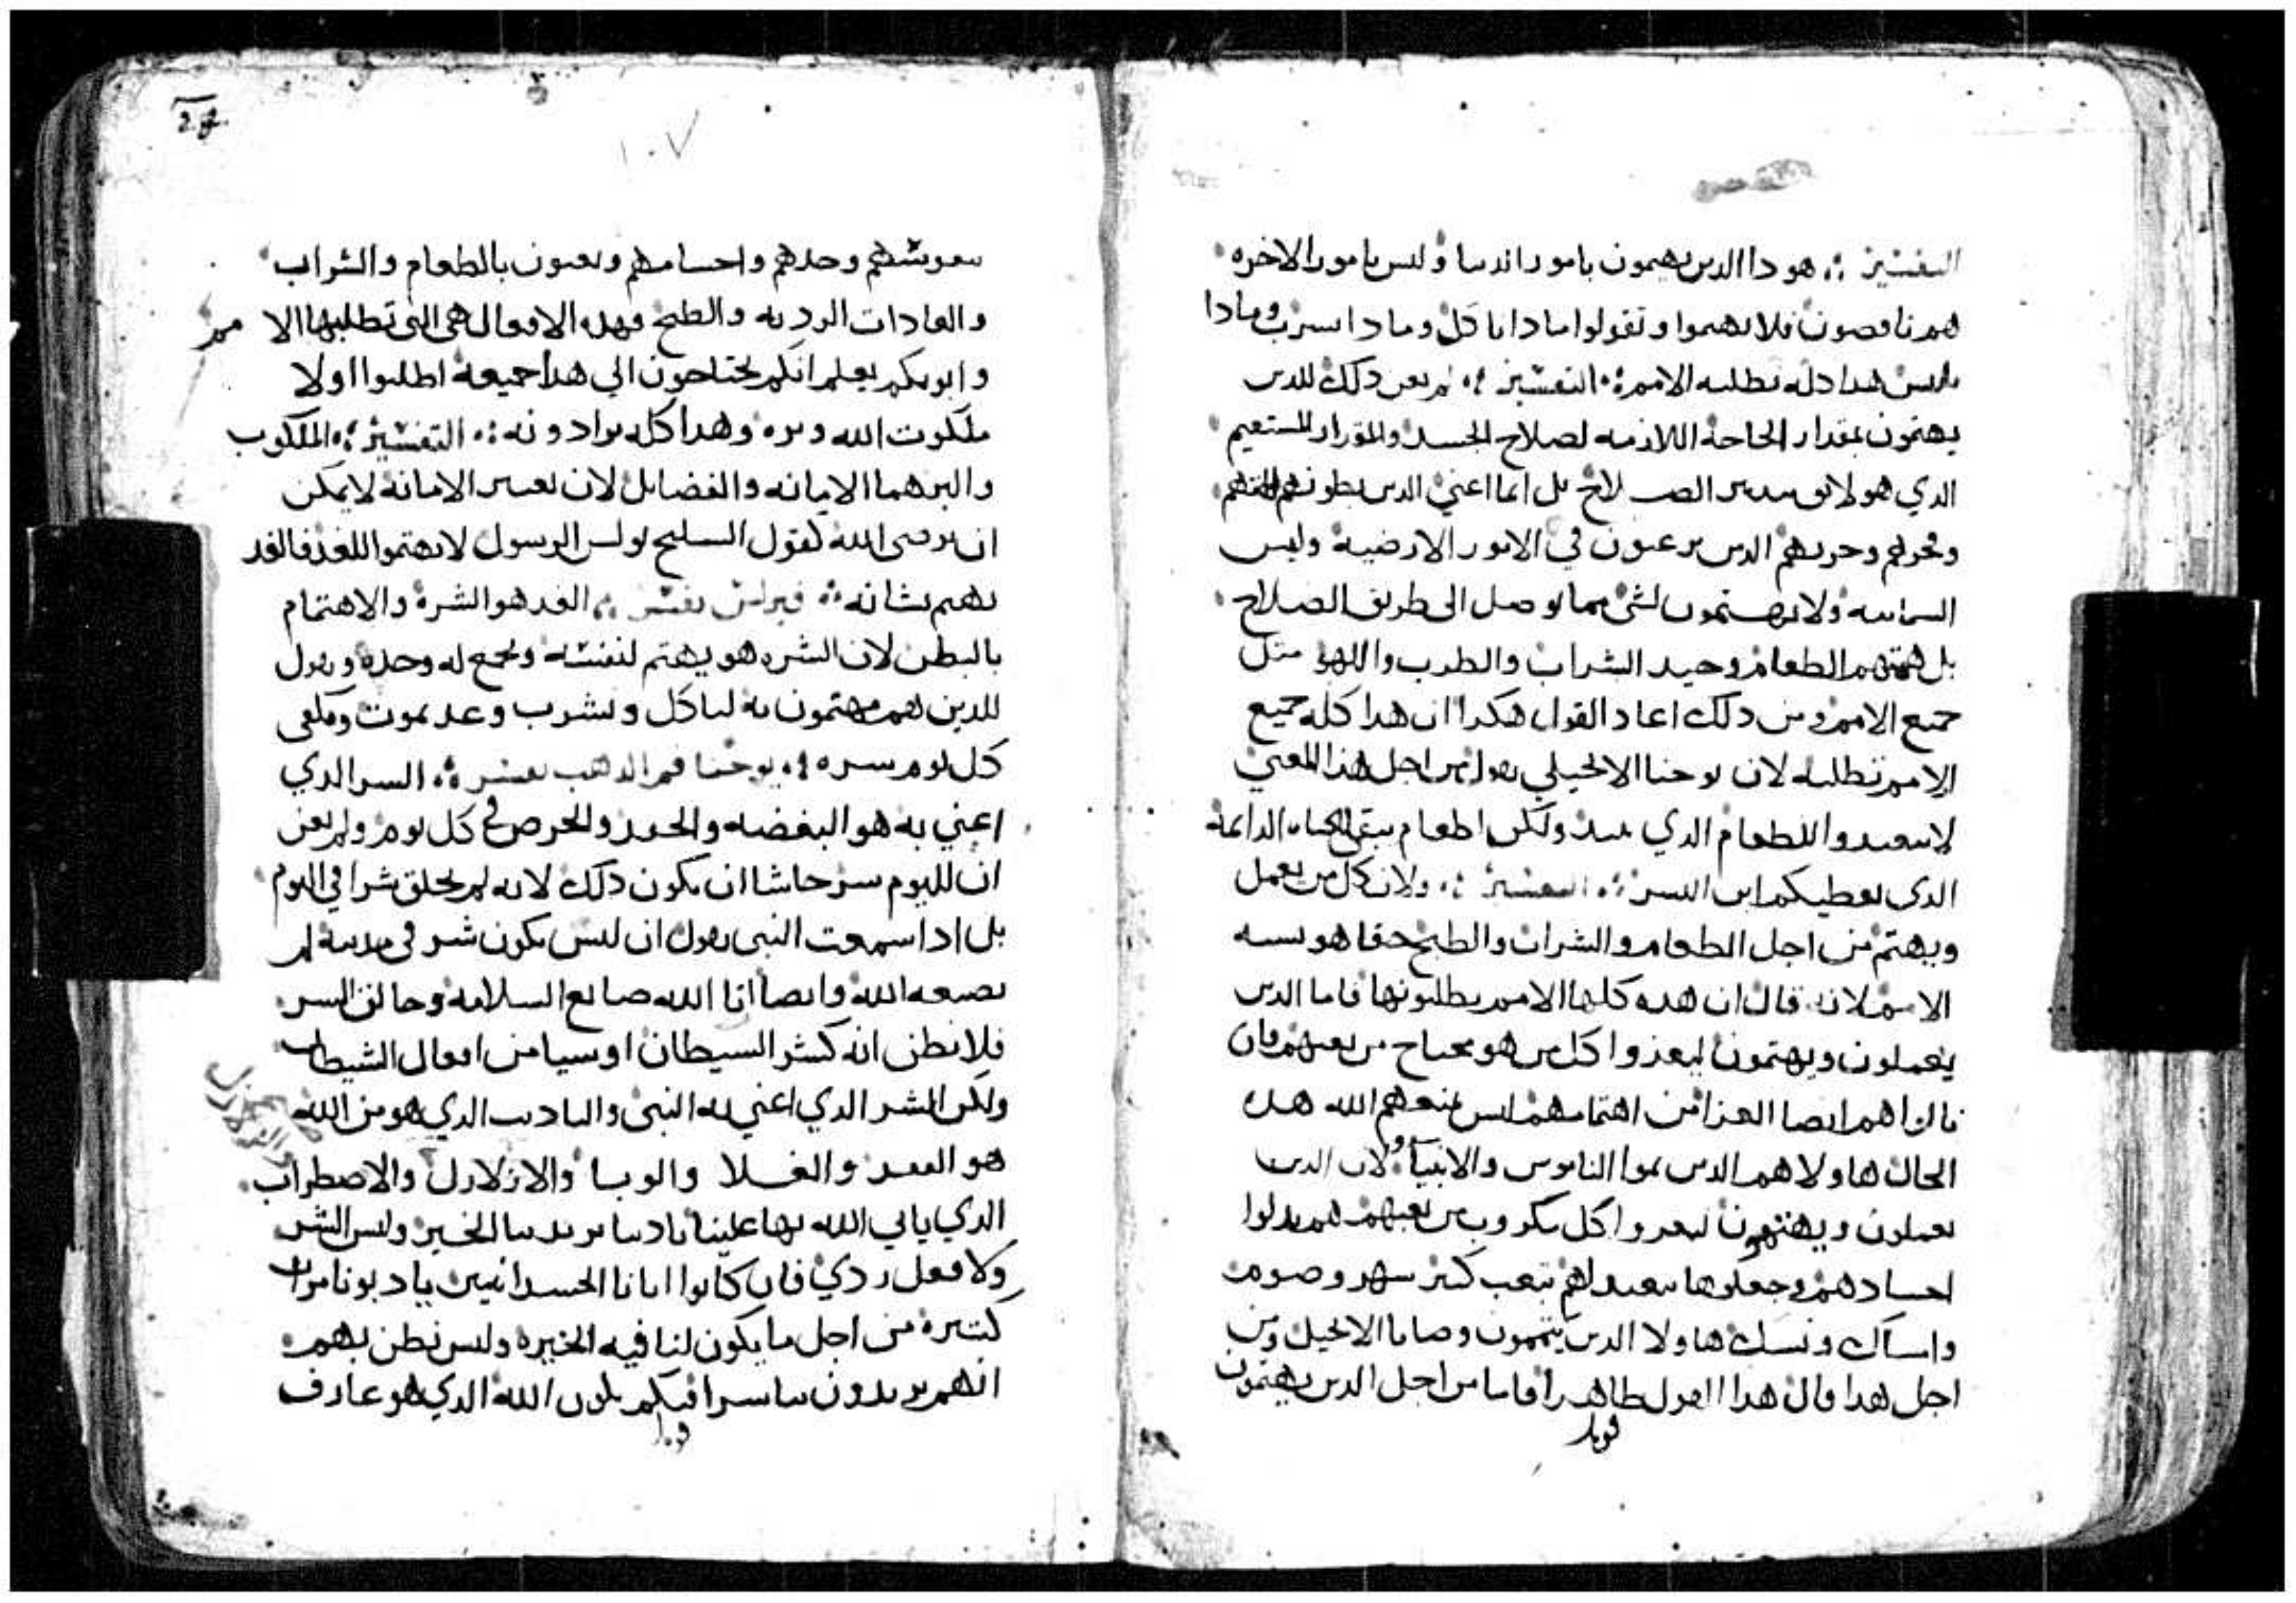 التفسير ؞ هودا الدين يهيمون بامور الدنيا وليس بامور الاخره
هم ناقصون فلا تهتموا وتقولوا مادا ناكل ومادا نشرب ومادا
نلبس هدا كله تطلبه الامم ؞ التفسير ؞ لم يعن دلك للدين
يهتمون بمقدار الحاحة اللازمه لصلاح الجسد والمقدار المستقيم
الدي هو لايق بتدبير الصلاح بل انما اعني الدين بطونهم الاههم
وفخرهم وخزيهم الدين يرعبون في الامور الارضية وليس
السمانيه ولا يهتمون لشي مما يوصل الى طريق الصلاح
بل همتهم الطعام وحيد الشراب والطرب واللهو متل
جميع الامم ومن دلك اعاد القول هكدا ان هدا كله جميع
الامم تطلبه لان يوحنا الانجيلي يقول من اجل هذا المعني
لا تتعبدوا للطعام الدي يبيد ولكن لطعام يبقي للحياه الدايمة
الدي يعطيكم ابن البشر ؞ التفسير ؞ ولان كل من يعمل
ويهتم من اجل الطعام والشراب والطبخ حقا هو يشبه
الامم لانه قال ان هده كلها الامم يطلبونها فاما الدين
يعملون ويهتمون ليعزوا كل من هو محتاج من تعبهم فان
قال اهم ايضا العزا من اهتمامهم ليس يمنعهم الله هده
الحال هاولا هم الدين تموا الناموس والانبيا ولان الدين
يعملون ويهتمون ليعزوا كل مكروب من تعبهم هم بدلوا
احسادهم وجعلوها تتعبد لهم بتعب كتير سهر وصوم
وامساك ونسك هاولا الدين يتممون وصايا الانجيل ومن
اجل هدا قال هدا القول ظاهرا فاما من اجل الدين يهتمون
قوبل
١٠٧
بنفوسهم وحدهم واجسامهم ويعنون بالطعام والشراب
والعادات الرديه والطبخ فهده الافعال هي التي تطلبها الامم
وابوكم يعلم انكم تحتاجون الي هدا جميعة اطلبوا اولا
ملكوت الله وبره وهدا كله تزادونه ؞ التفسير ؞ الملكوت
والبر هما الايمانه والفضايل لان بغير الامانه لا يمكن
ان يرضى الله كقول السليح بولس الرسول لا تهتموا للغد فالغد
يهتم بشانه ؞ كيرلس يفسر ؞ الغد هو الشره والاهتمام
بالبطن لان الشره هو يهتم لنفسه ويجمع له وحده ويقول
للدين هم مهتمون به لناكل ونشرب وغد نموت ويكفى
كل يوم شره ؞ يوحنا فم الدهب يفسر ؞ الشر الدي
اعني به هو البغضه والحقد والحرص في كل يوم ولم يعن
ان لليوم شر حاشا ان يكون دلك لانه لم يخلق شرا في اليوم
بل ادا سمعت النبي يقول ان ليس يكون شر في مدينة لم
يصنعه الله وايضا انا الله صانع السلامه وخالق الشر
فلا تظن انه كشر الشيطان او شيا من افعال الشيطان
ولكن الشر الدي اعني به النبي والتاديب الدي هو من الله
هو القحط والغلا والوبا والازلازل والاضطراب
الدي ياتي الله بها علينا تاديبا يريد بنا الخير وليس الشر
ولا فعل ردي فان كانوا ابانا الجسدانيين يادبونا مرات
كتيره من اجل ما يكون لنا فيه الخيره وليس نظن بهم
انهم يريدون بنا شرا فكم يكون الله الدي هو عارف
قوبل